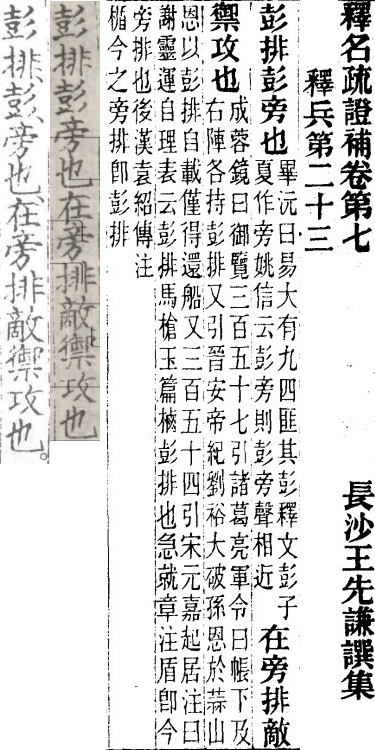 釋名疏證補卷第七
長沙王先謙譔集
釋兵第二十三
彭排彭旁也畢沅曰易大有九四匪其彭釋文彭子夏作旁姚信云彭旁則彭旁聲相近在旁排敵
禦攻也成蓉鏡曰御覽三百五十七引諸葛亮軍令曰帳下及右陣各持彭排又引晉安帝紀劉裕大破孫恩於蒜山
恩以彭排自載僅得還船又三百五十四引宋元嘉起居注曰
謝靈運自理表云彭排馬槍玉篇樐彭排也急就章注盾卽今
旁排也後漢袁紹傳注
楯今之旁排卽彭排
彭排彭旁也在旁排敵禦攻也
彭排彭旁也在旁排敵禦攻也。